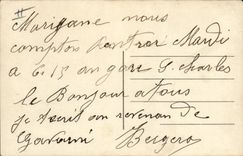 Marigane nous
comptons rentrer Mardi
a 6.15 en gare St Charles
le Bonjour a tous
je t'ecris en revenan de
Gavarni
Bergero